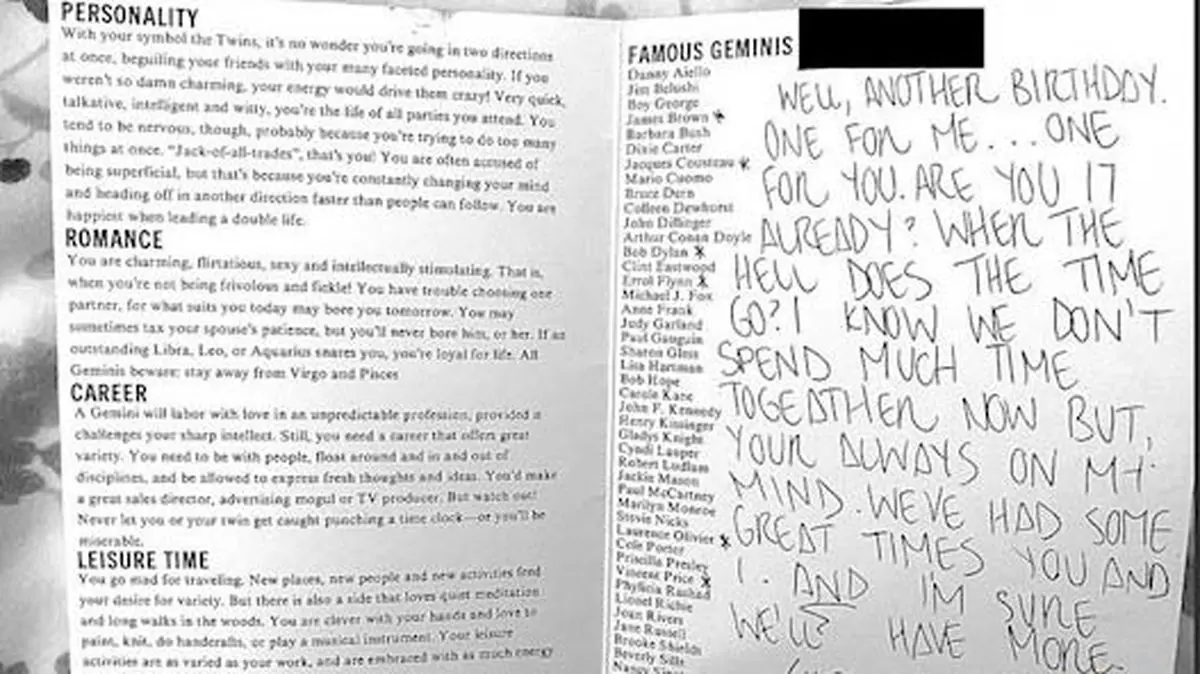 PERSONALITY
With your symbol the Twins, it's no wonder you're going in two directions
at once, beguiling your friends with your many faceted personality. If you
weren't so damn charming, your energy would drive them crazy! Very quick,
talkative, intelligent and witty, you're the life of all parties you attend. You
tend to be nervous, though, probably because you're trying to do too many
things at once. "Jack-of-all-trades", that's you! You are often accused of
being superficial, but that's because you're constantly changing your mind
and heading off in another direction faster than people can follow. You are
happiest when leading a double life.
ROMANCE
You are charming, flirtatious, sexy and intellectually stimulating. That is,
when you're not being frivolous and fickle! You have trouble choosing one
partner, for what suits you today may bore you tomorrow. You may
sometimes tax your spouse's patience, but you'll never bore him, or her. If an
outstanding Libra, Leo, or Aquarius snares you, you're loyal for life. All
Geminis beware: stay away from Virgo and Pisces
CAREER
A Gemini will labor with love in an unpredictable profession, provided it
challenges your sharp intellect. Still, you need a career that offers great
variety. You need to be with people, float around and in and out of
disciplines, and be allowed to express fresh thoughts and ideas. You'd make
a great sales director, advertising mogul or TV producer. But watch out!
Never let you or your twin get caught punching a time clock—or you'll be
miserable.
LEISURE TIME
You go mad for traveling. New places, new people and new activities feed
your desire for variety. But there is also a side that loves quiet meditation
and long walks in the woods. You are clever with your hands and love to
paint, knit, do handcrafts, or play a musical instrument. Your leisure
activities are as varied as your work, and are embraced with as much energy
FAMOUS GEMINIS
Danny Aiello
Jim Belushi
Boy George
James Brown *
Barbara Bush
Dixie Carter
Jacques Cousteau *
Mario Cuomo
Bruce Dern
Colleen Dewhurst
John Dillinger
Arthur Conan Doyle
Bob Dylan *
Clint Eastwood
Errol Flynn *
Michael J. Fox
Anne Frank
Judy Garland
Paul Gauguin
Sharon Gless
Lisa Hartman
Bob Hope
Carole Kane
John F. Kennedy
Henry Kissinger
Gladys Knight
Cyndi Lauper
Robert Ludlum
Jackie Mason
Paul McCartney
Marilyn Monroe
Stevie Nicks
Laurence Olivier *
Cole Porter
Priscilla Presley
Vincent Price *
Phylicia Rashad
Lionel Richie
Joan Rivers
Jane Russell
Brooke Shields
Beverly Sills
Nancy
WELL, ANOTHER BIRTHDAY.
ONE FOR ME... ONE
FOR YOU. ARE YOU 17
ALREADY? WHER THE
HELL DOES THE TIME
GO? I KNOW WE DON'T
SPEND MUCH TIME
TOGEATHER NOW BUT,
YOUR ALWAYS ON MY
MIND. WEVE HAD SOME
GREAT TIMES YOU AND
I. AND I'M SURE
WE'LL HAVE MORE.